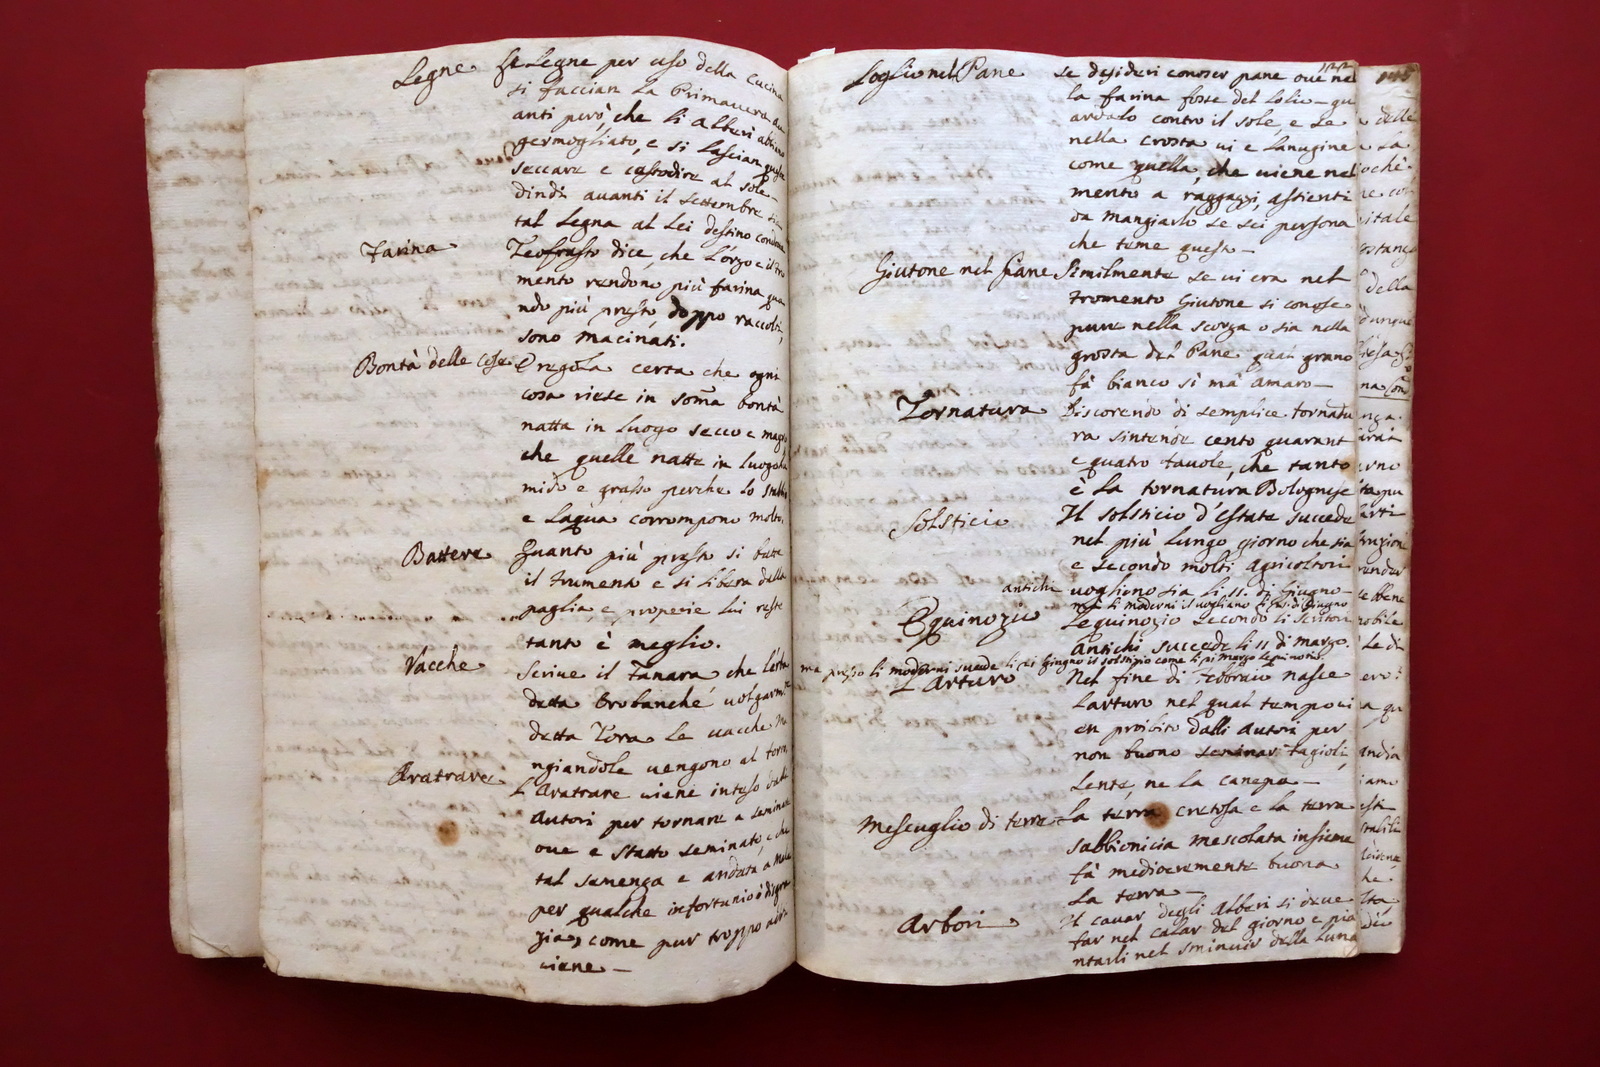 Legne Le Legne per uso della Cucina
si faccian La Primauera au
anti però, che li alberi abbiano
germogliato, e si lascian queste
seccare e custodire al sole
dindi auanti il settembre
tal Legna al Lei destino conduce
Farina Teofrasto dice, che L'orzo e il fro
mento rendono più farina qua
ndo più presto, doppo raccolti,
sono macinati.
Bontà delle Cose E regola certa che ogni
cosa riese in soma bontà
natta in luogo secco e magro
che quelle natte in luogo u
mido e grasso perche lo stabbio
e Laqua corrompono molto.
Battere Quanto più presto si batte
il frumento e si libera dalla
paglia, e, properie lui reste
tanto è meglio.
Vacche Scriue il Tanara che l'erba
detta Orobanché uolgarmte
detta Tora Le uacche ma
ngiandole uengono al toro.
Aratrare L'Aratrare uiene inteso dalli
Autori per tornare a seminare
oue e statto seminato, e che
tal semenza e andata a Male
per qualche infortunio ò disgra
zia, come pur troppo adi
uiene —
Loglio nel Pane Se desideri conoser pane oue ne
la farina fosse del lolio — gu
ardalo contro il sole, e se
nella crosta ui e Lanugine
come quella, che uiene nel
mento a raggazzi, astienti
da mangiarlo se sei persona
che teme questo —
Giutone nel Pane Similmente se ui era nel
fromento Giutone si conose
pure nella scorza o sia nella
grosta del Pane qual grano
fà bianco sì mà amaro —
Tornatura Discorendo di semplice tornatu
ra sintende cento quarant
e quatro tauole, che tanto
è la tornatura Bolognese
Solsticio Il solsticio d'estate succede
nel più lungo giorno che sia
e secondo molti Agricoltori
antichi uogliono sia li 11. di Giugno —
mà li moderni il uogliano li 21. di Giugno
Equinozio Lequinozio secondo li scritori
Antichi succede li 11 di marzo.
ma presso li moderni sucede li 21 Giugno il solstizio come li 21 Marzo lequinozio
L'Arturo Nel fine di Febbraio nasce
Larturo nel qual tempo ui
en proibito dalli Autori per
non buono seminar fagioli,
Lente, ne la canepa —
Mescuglio di terre La terra cretosa e la terra
sabbionicia mescolata insieme
fà mediocremente buona
La terra —
Arbori Il cauar degli Alberi si deue
far nel calar del giorno e pia
ntarli nel sminuir della Luna